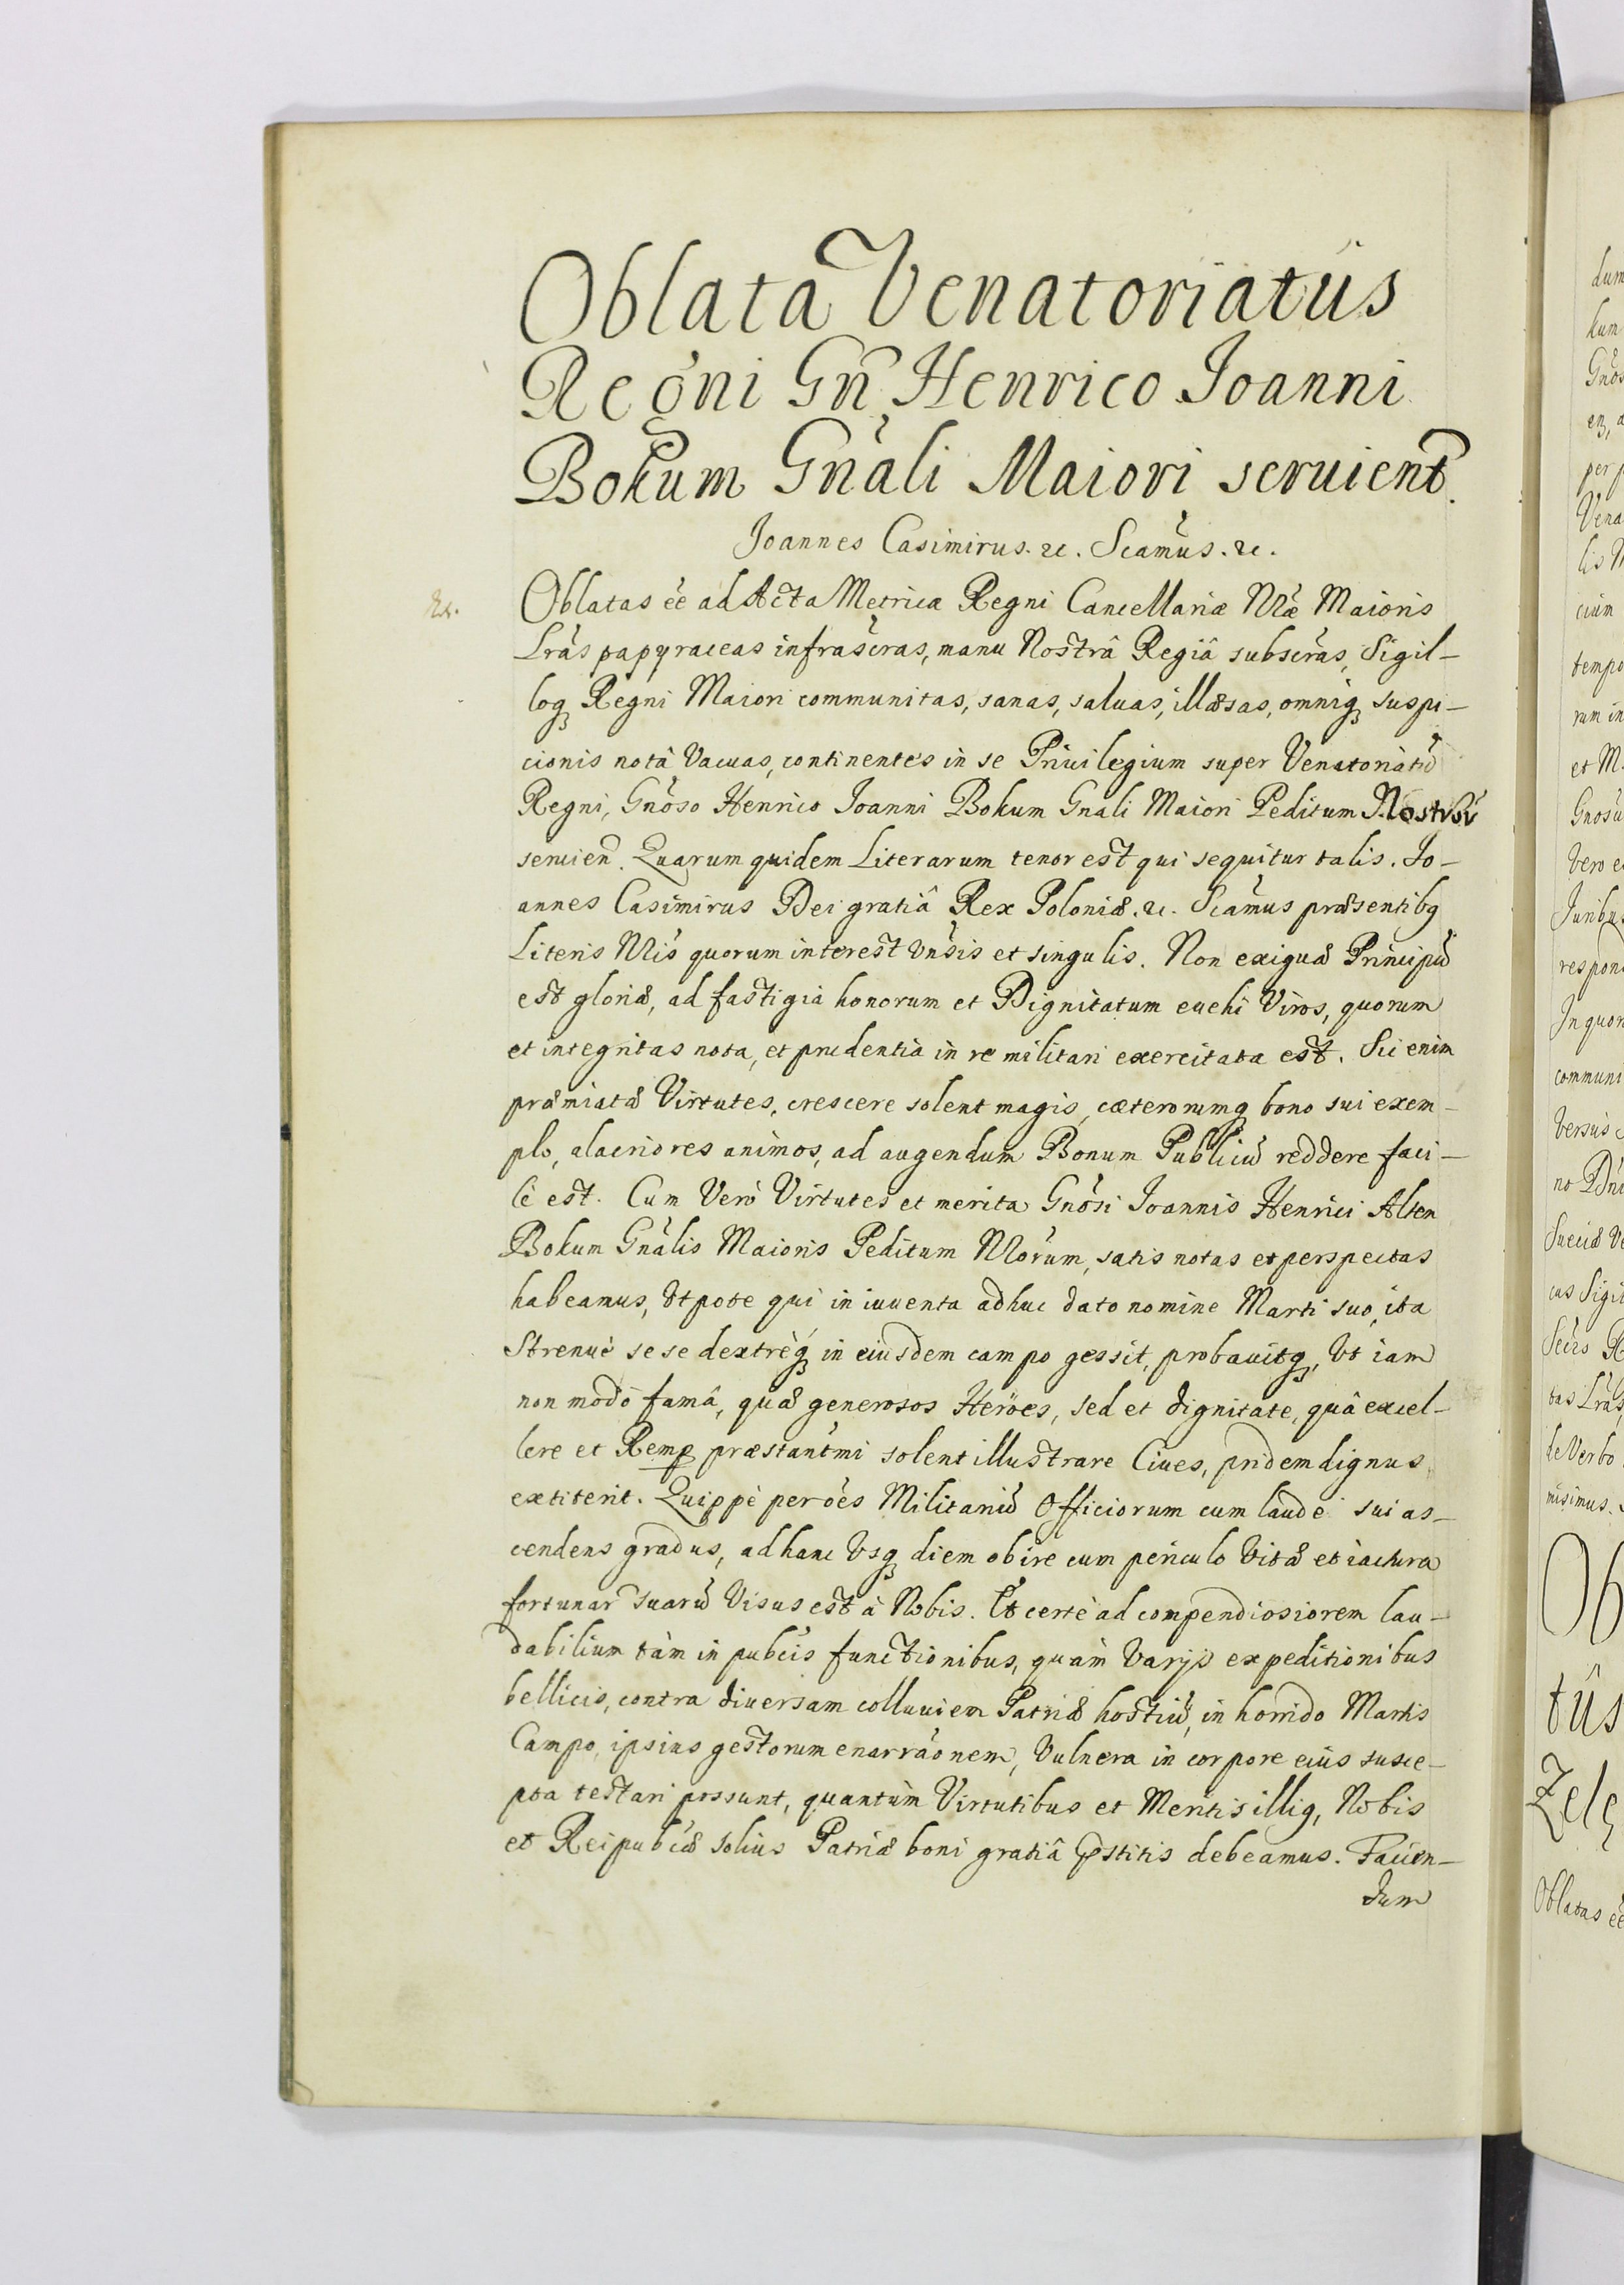 Oblata Venatoriatûs
Regni Gn̄ Henrico Joanni
Bokum Gnali Maiori seruient.
Joannes Casimirus. etc. Scamus. etc.
Oblatas ee ad Acta Metricæ Regni Cancellariæ Nræ Maioris
Lras papyraceas infrascras, manu Nostrâ Regiâ subscras, Sigil-
loq Regni Maiori communitas, sanas, saluas, illæsas, omniq suspi-
cionis notâ Vacuas, continentes in se Priuilegium super Venatoriatū
Regni, Gnoso Henrico Joanni Bokum Gnali Maiori Peditum Nostrorū
seruien. Quarum quidem Literarum tenor est qui sequitur talis. Jo-
annes Casimirus Dei gratiâ Rex Poloniæ. etc. Scamus præsentibq
Literis Nris quorum interest Vnsis et singulis. Non exiguæ Principū
est gloriæ, ad fastigia honorum et Dignitatum euehi Viros, quorum
et integritas nota, et prudentia in re militari exercitata est. Sic enim
præmiatæ Virtutes, crescere solent magis, cæterorumq bono sui exem-
plo, alacriores animos, ad augendum Bonum Publicū reddere faci-
le est. Cum Vero Virtutes et merita Gnosi Joannis Henrici Alten
Bokum Gnalis Maioris Peditum Nrorum, satis notas et perspectas
habeamus, Vtpote qui in iuuenta adhuc dato nomine Marti suo, ita
Strenue sese dextreq in eiusdem campo gessit, probauitq, Vt iam
non modo famâ, quæ generosos Heroes, sed et dignitate, quâ excel-
lere et Remp præstantmi solent illustrare Ciues, pridem dignus
extiterit. Quippè per oes Militariū Officiorum cum laude sui as-
cendens gradus, ad hanc Vsq diem obire cum periculo Vitæ et iactura
fortunar suarū Visus est à Nobis. Et certè ad compendiosiorem lau-
dabilium tàm in pubcis functionibus, quàm Varijs expeditionibus
bellicis, contra diuersam colluuiem Patriæ hostiū, in horrido Martis
Campo, ipsius gestorum enarraonem, Vulnera in corpore eius susce-
pta testari possunt, quantùm Virtutibus et Meritis illiq, Nobis
et Reipubcæ solius Patriæ boni gratiâ pstitis debeamus. Facien-
dum